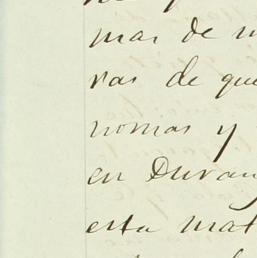 mas de
ras de que
nomias y
en Duran
esta mat